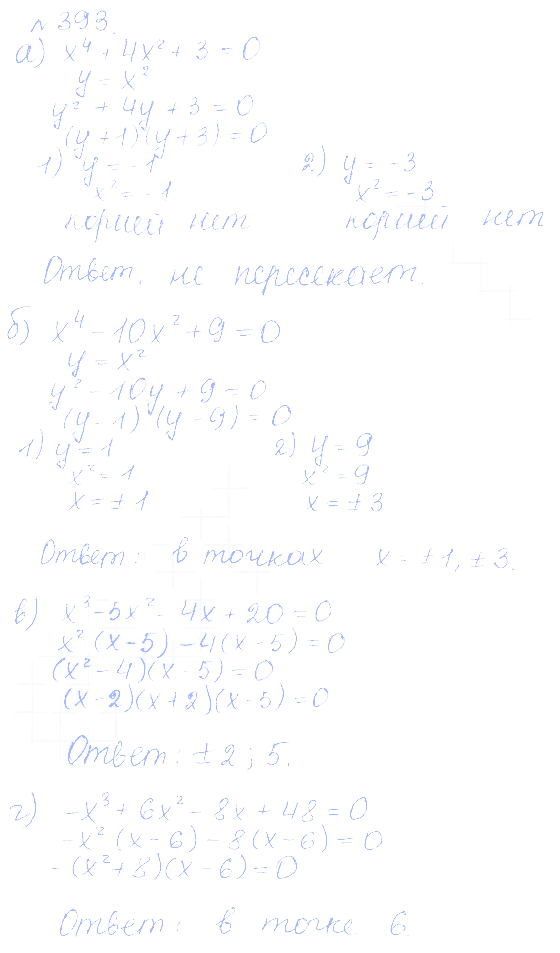 № 393.
а) x⁴ + 4x² + 3 = 0
y = x²
y² + 4y + 3 = 0
(y + 1)(y + 3) = 0
1) y = -1
x² = -1
корней нет
2) y = -3
x² = -3
корней нет
Ответ. не пересекает.
б) x⁴ - 10x² + 9 = 0
y = x²
y² - 10y + 9 = 0
(y - 1) (y - 9) = 0
1) y = 1
x² = 1
x = ± 1
2) y = 9
x² = 9
x = ± 3
Ответ: в точках x = ±1, ±3.
в) x³ - 5x² - 4x + 20 = 0
x² (x - 5) - 4(x - 5) = 0
(x² - 4)(x - 5) = 0
(x - 2)(x + 2)(x - 5) = 0
Ответ: ± 2 ; 5.
г) -x³ + 6x² - 8x + 48 = 0
-x² (x - 6) - 8(x - 6) = 0
- (x² + 8)(x - 6) = 0
Ответ: в точке 6.